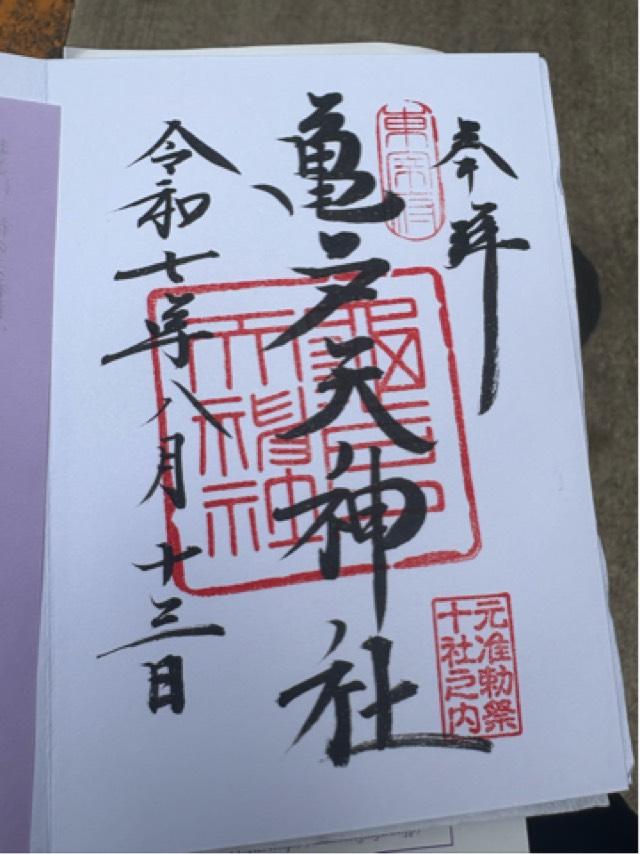 奉拝
東宰府
亀戸天神社
令和七年八月十三日
元准勅祭
十社之内